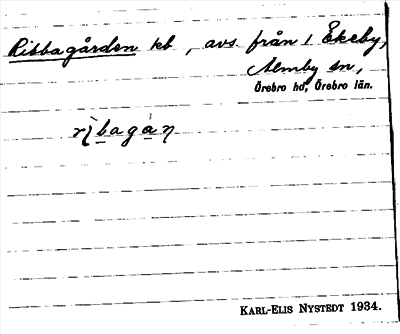 Ribbagården kb, avs. från 1 Ekeby,
Almby sn,
Örebro hd, Örebro län.
rìbagàn
KARL-ELIS NYSTEDT 1934.